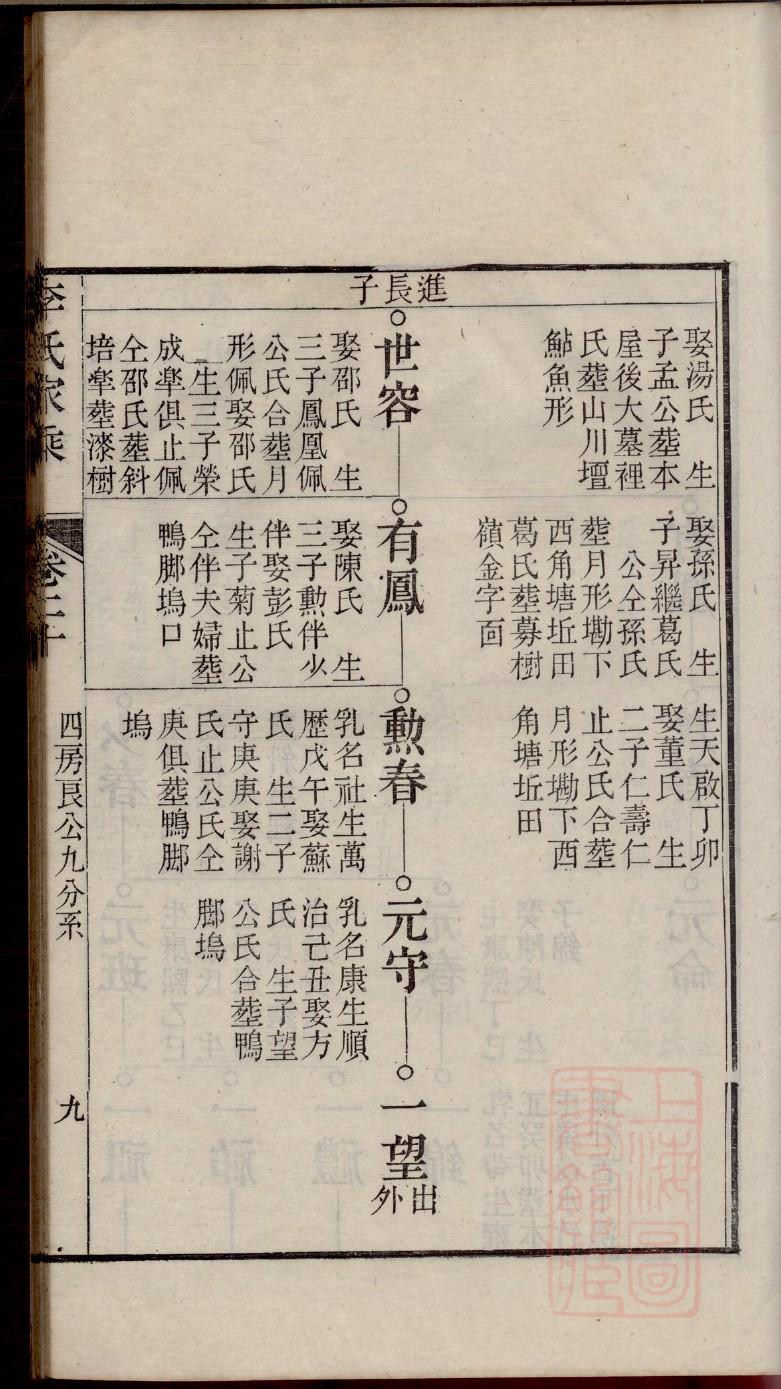 娶湯氏　生
子孟公塟本
屋後大墓裡
氏塟山川壇
鮎魚形
娶孫氏　生
子昇繼葛氏
公仝孫氏
塟月形墈下
西角塘坵田
葛氏塟募樹
嶺金字靣
生天啟丁卯
娶董氏　生
二子仁壽仁
止公氏合塟
月形墈下西
角塘坵田
進長子
世容
娶邵氏　生
三子鳳凰佩
公氏合塟月
形佩娶邵氏
生三子榮
成犖俱止佩
仝邵氏塟斜
培犖塟漆樹
有鳳
娶陳氏　生
三子勲伴少
伴娶彭氏
生子菊止公
仝伴夫婦塟
鴨脚塢口
勲春
乳名社生萬
歷戊午娶蘇
氏　生二子
守庚庚娶謝
氏止公氏仝
庚俱塟鴨脚
塢
元守
乳名康生順
治己丑娶方
氏　生子望
公氏合塟鴨
脚塢
一望
出外
李氏家乘
卷二十
四房良公九分系
九
上海圖書館